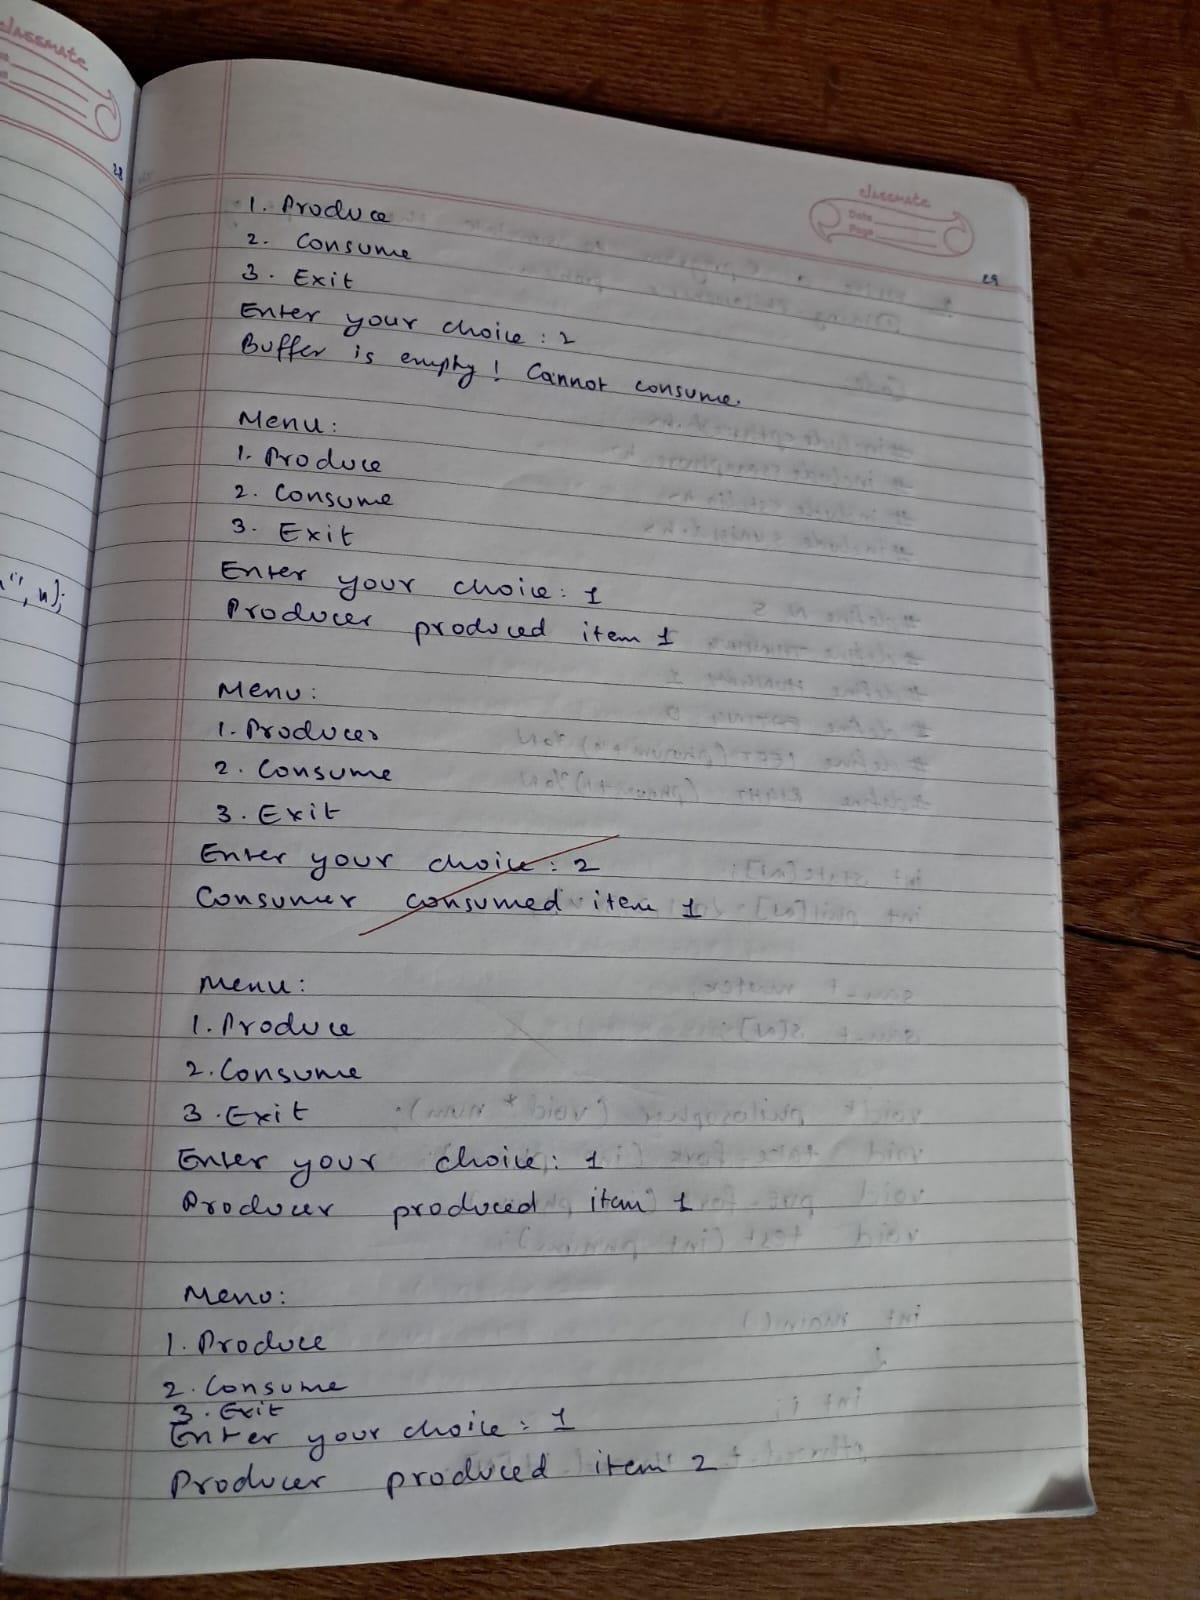 classmate
28
", n);
classmate
Date
Page
29
1. Produce
2. Consume
3. Exit
Enter your choice : 2
Buffer is empty! Cannot consume.
Menu :
1. Produce
2. Consume
3. Exit
Enter your choice : 1
Producer produced item 1
Menu :
1. Producer
2. Consume
3. Exit
Enter your choice : 2
Consumer consumed item 1
Menu :
1. Produce
2. Consume
3. Exit
Enter your choice : 1
Producer produced item 1
Menu :
1. Produce
2. Consume
3. Exit
Enter your choice : 1
Producer produced item 2